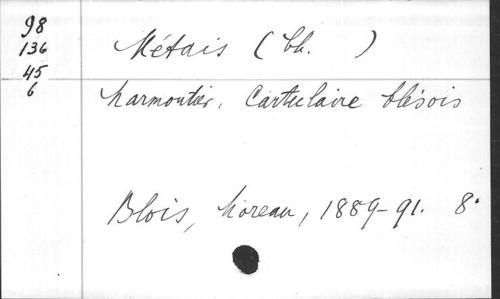 98
136
45
6
Métais (Ch. )
Marmoutier. Cartulaire blésois
Blois, Moreau, 1889-91. 8°